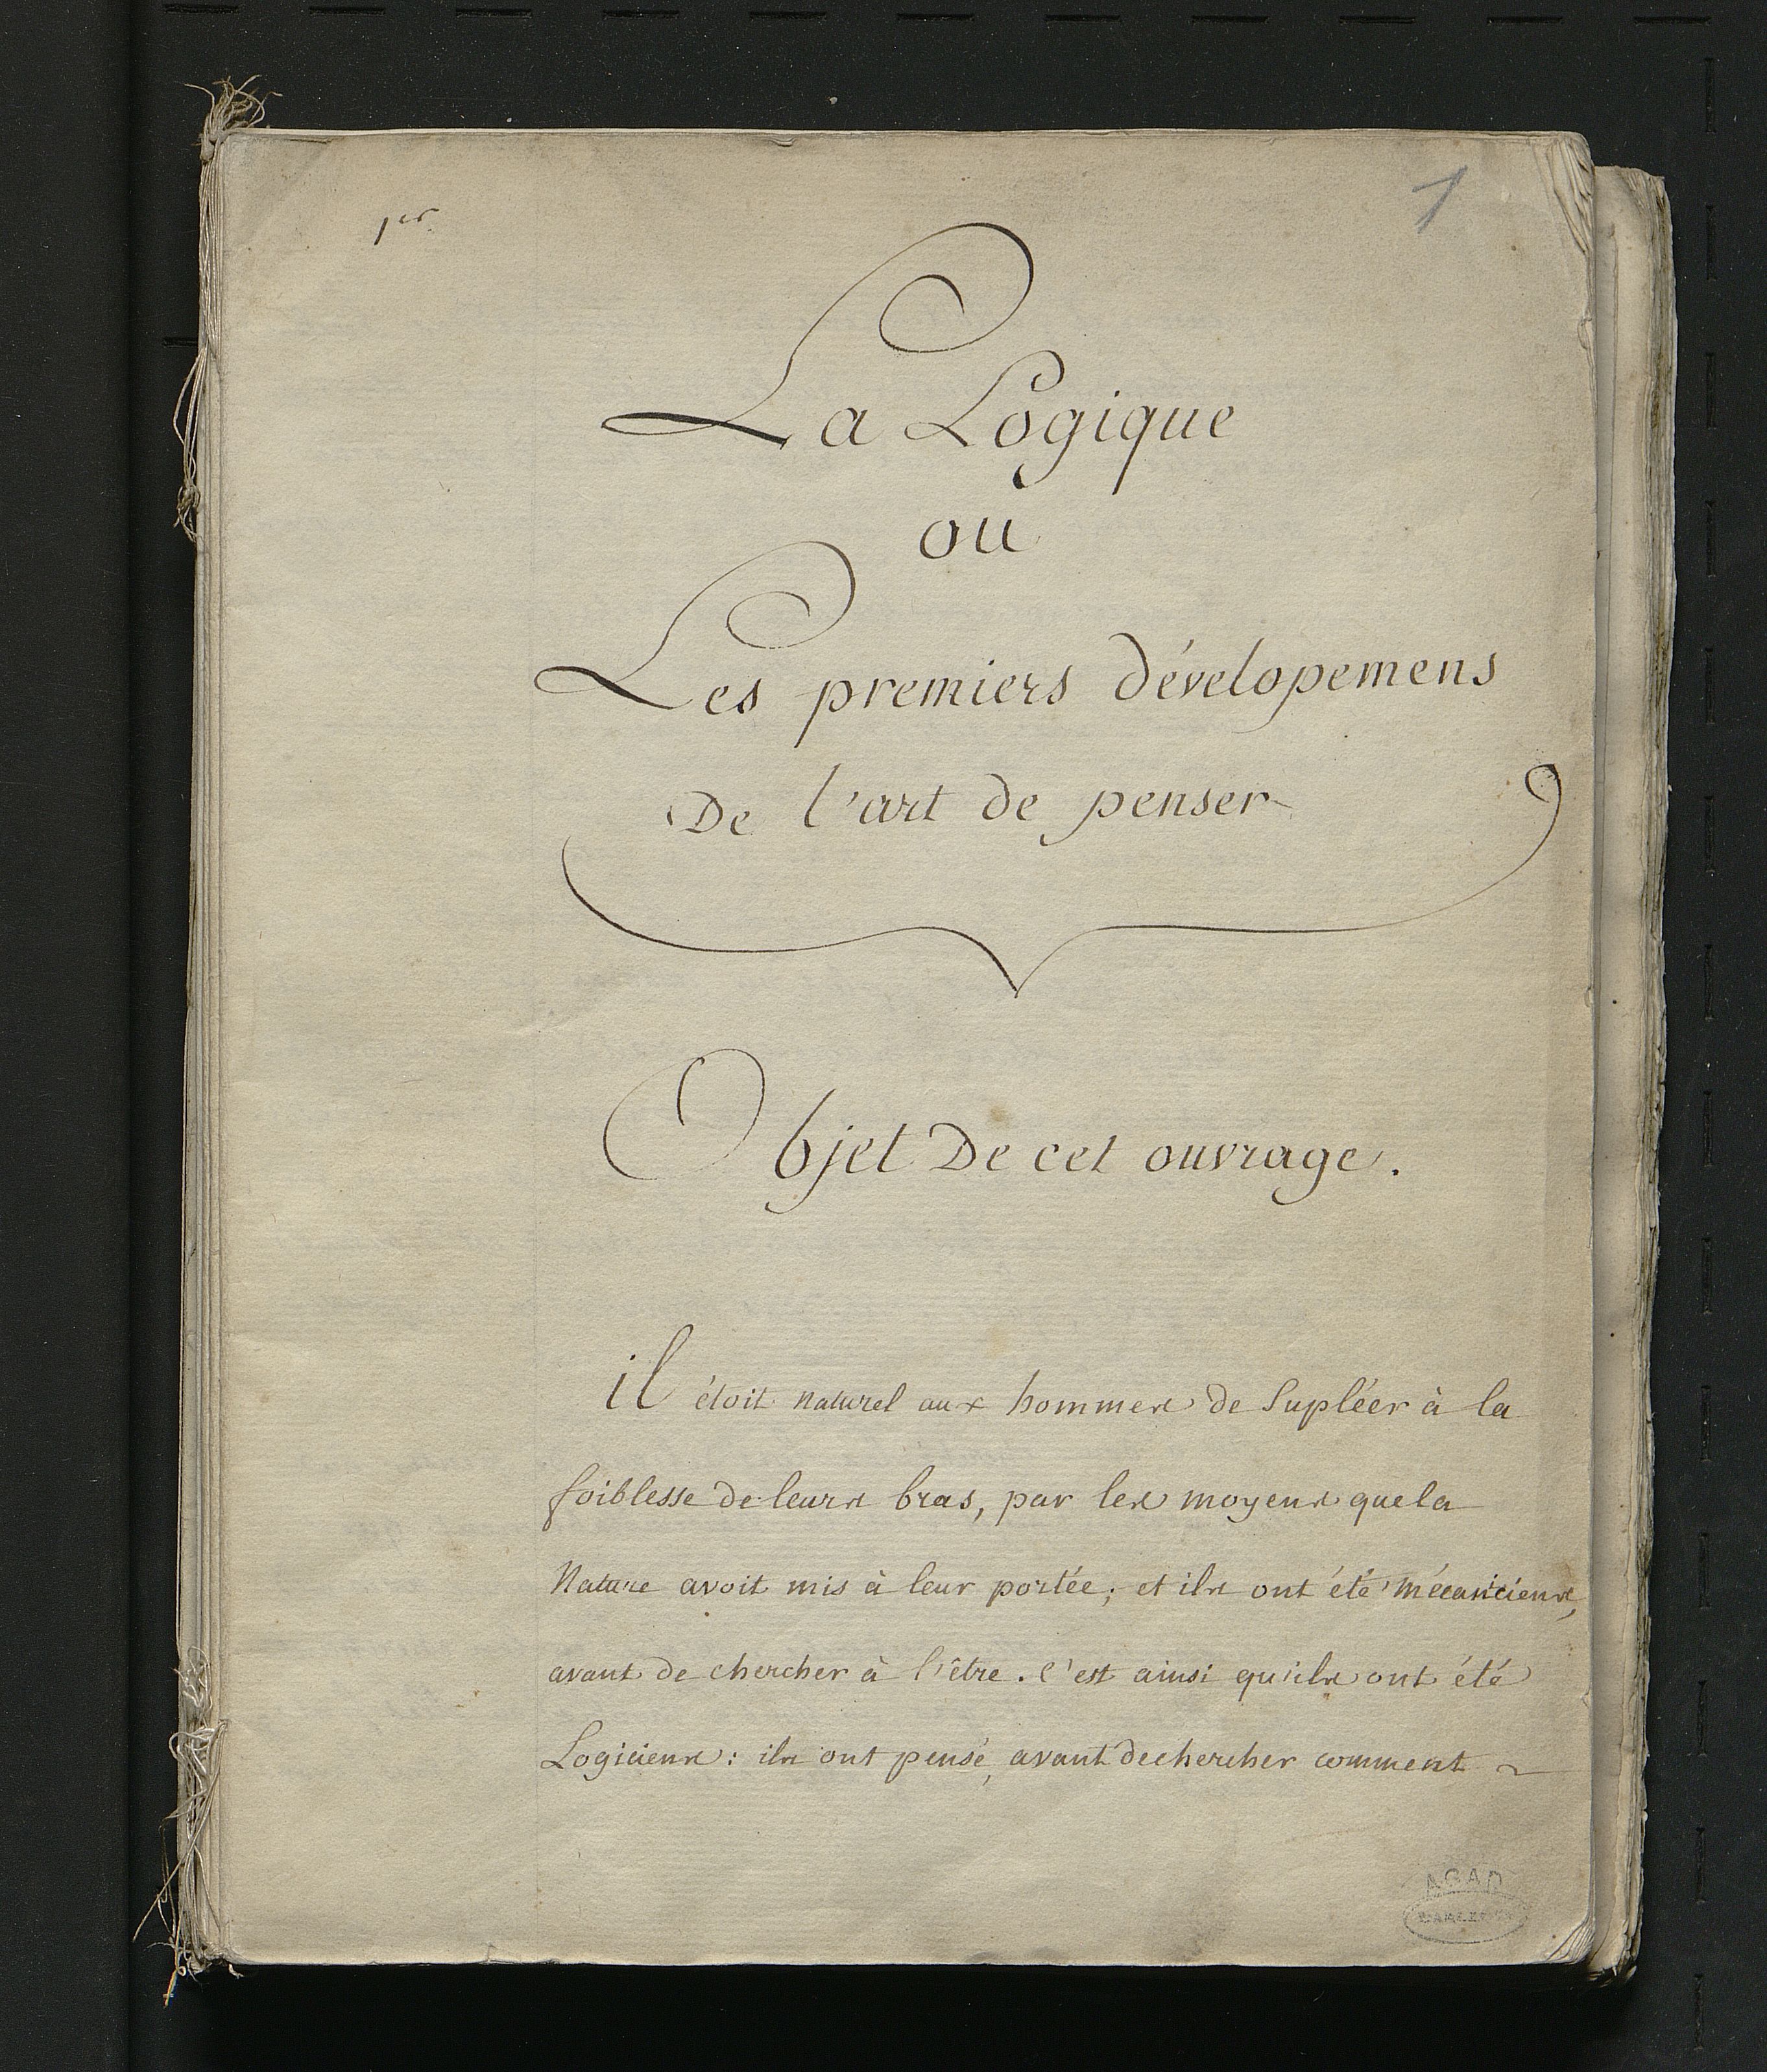 1er
1
La Logique
ou
Les premiers dévelopemens
De l'art de penser
Objet De cet ouvrage.
il étoit naturel aux hommes de Supléer à la
foiblesse de leurs bras, par les moyens que la
Nature avoit mis à leur portée; et ils ont été mécaniciens,
avant de chercher à l'être. c'est ainsi qu'ils ont été
Logiciens: ils ont pensé, avant de chercher comment
AGAD